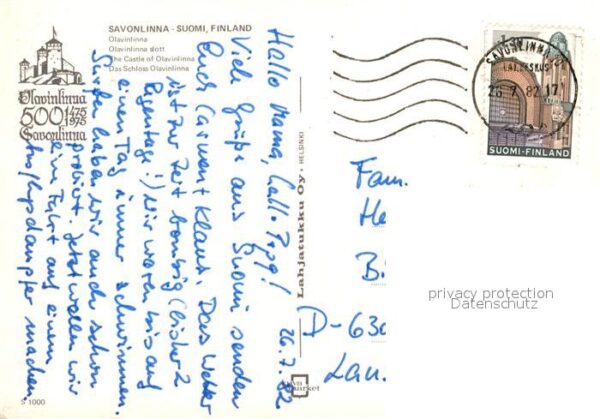 SAVONLINNA - SUOMI, FINLAND
Olavinlinna
Olavinlinna slott
The Castle of Olavinlinna
Das Schloss Olavinlinna
Olavinlinna
500 1475 1975
Savonlinna
26.7.82
Hallo Mama, hallo Papa!
Viele Grüße aus Suomi senden
Euch Carmen + Klaus. Das Wetter
ist zur Zeit bombig (bisher 2
Regentage!) Wir waren bis auf
einen Tag immer schwimmen.
Sauna haben wir auch schon
probiert. Jetzt wollen wir
eine Fahrt auf einem
dampfer machen.
S 1000
Lahjatukku Oy. HELSINKI
SAVONLINNA
26.7.82.17
SUOMI-FINLAND
Fam.
He
B.
D-630
Lau.
privacy protection
Datenschutz